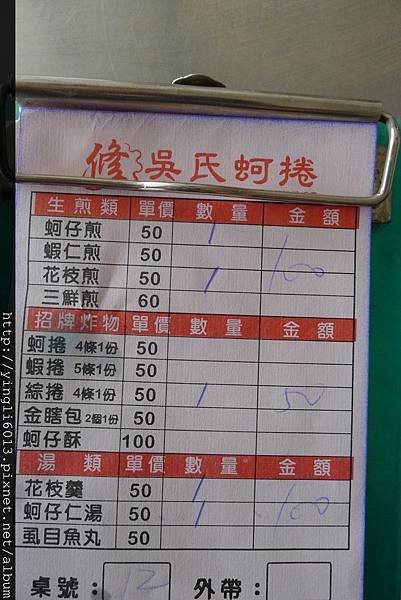 修 吳氏蚵捲
生煎類 單價 數量 金額
蚵仔煎 50 1
蝦仁煎 50 100
花枝煎 50 1
三鮮煎 60
招牌炸物 單價 數量 金額
蚵捲 4條1份 50
蝦捲 5條1份 50
綜捲 4條1份 50 1 50
金瞎包 2個1份 50
蚵仔酥 100
湯類 單價 數量 金額
花枝羹 50 1
蚵仔仁湯 50 1 100
虱目魚丸 50
桌號: 12 外帶:
http://yingli6013.pixnet.net/album